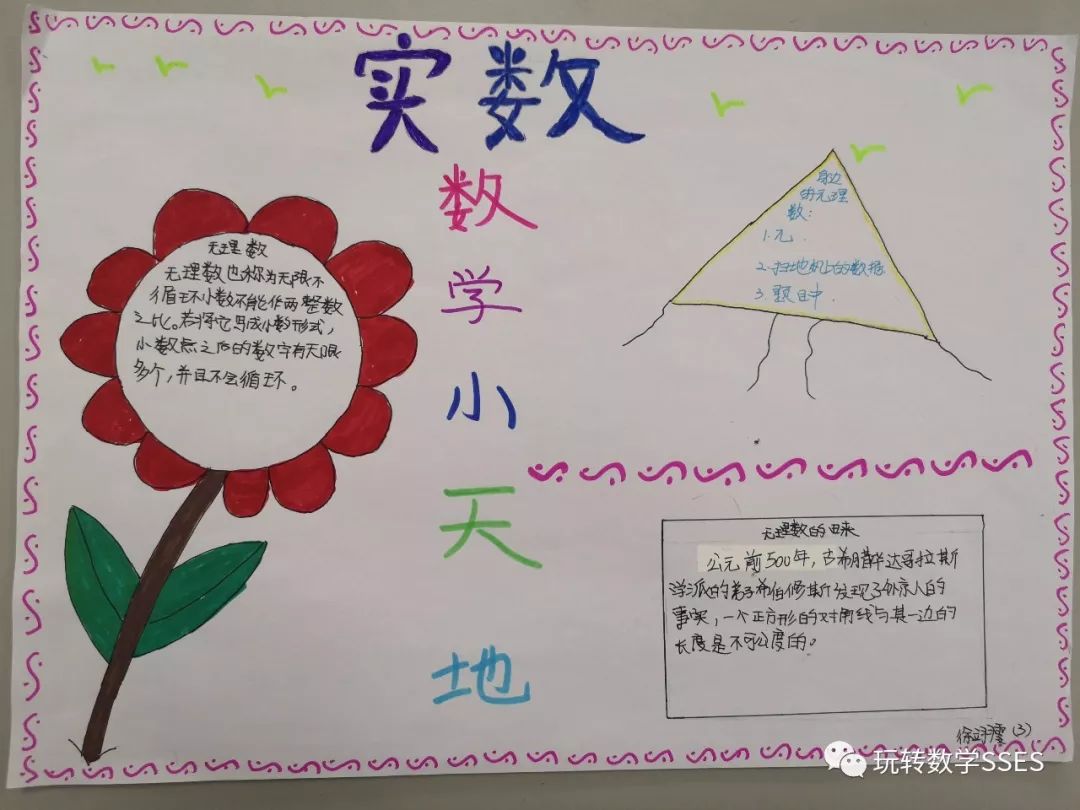 实数
数
学
小
天
地
无理数
无理数也称为无限不
循环小数不能作两整数
之比。若将它写成小数形式，
小数点之后的数字有无限
多个，并且不会循环。
身边
的无理
数：
1.π.
2.扫地机上的数据
3.题目中.
无理数的由来
公元前500年，古希腊毕达哥拉斯
学派的弟子希伯修斯发现了惊人的
事实，一个正方形的对角线与其一边的
长度是不可公度的。
徐 (3)
玩转数学SSES